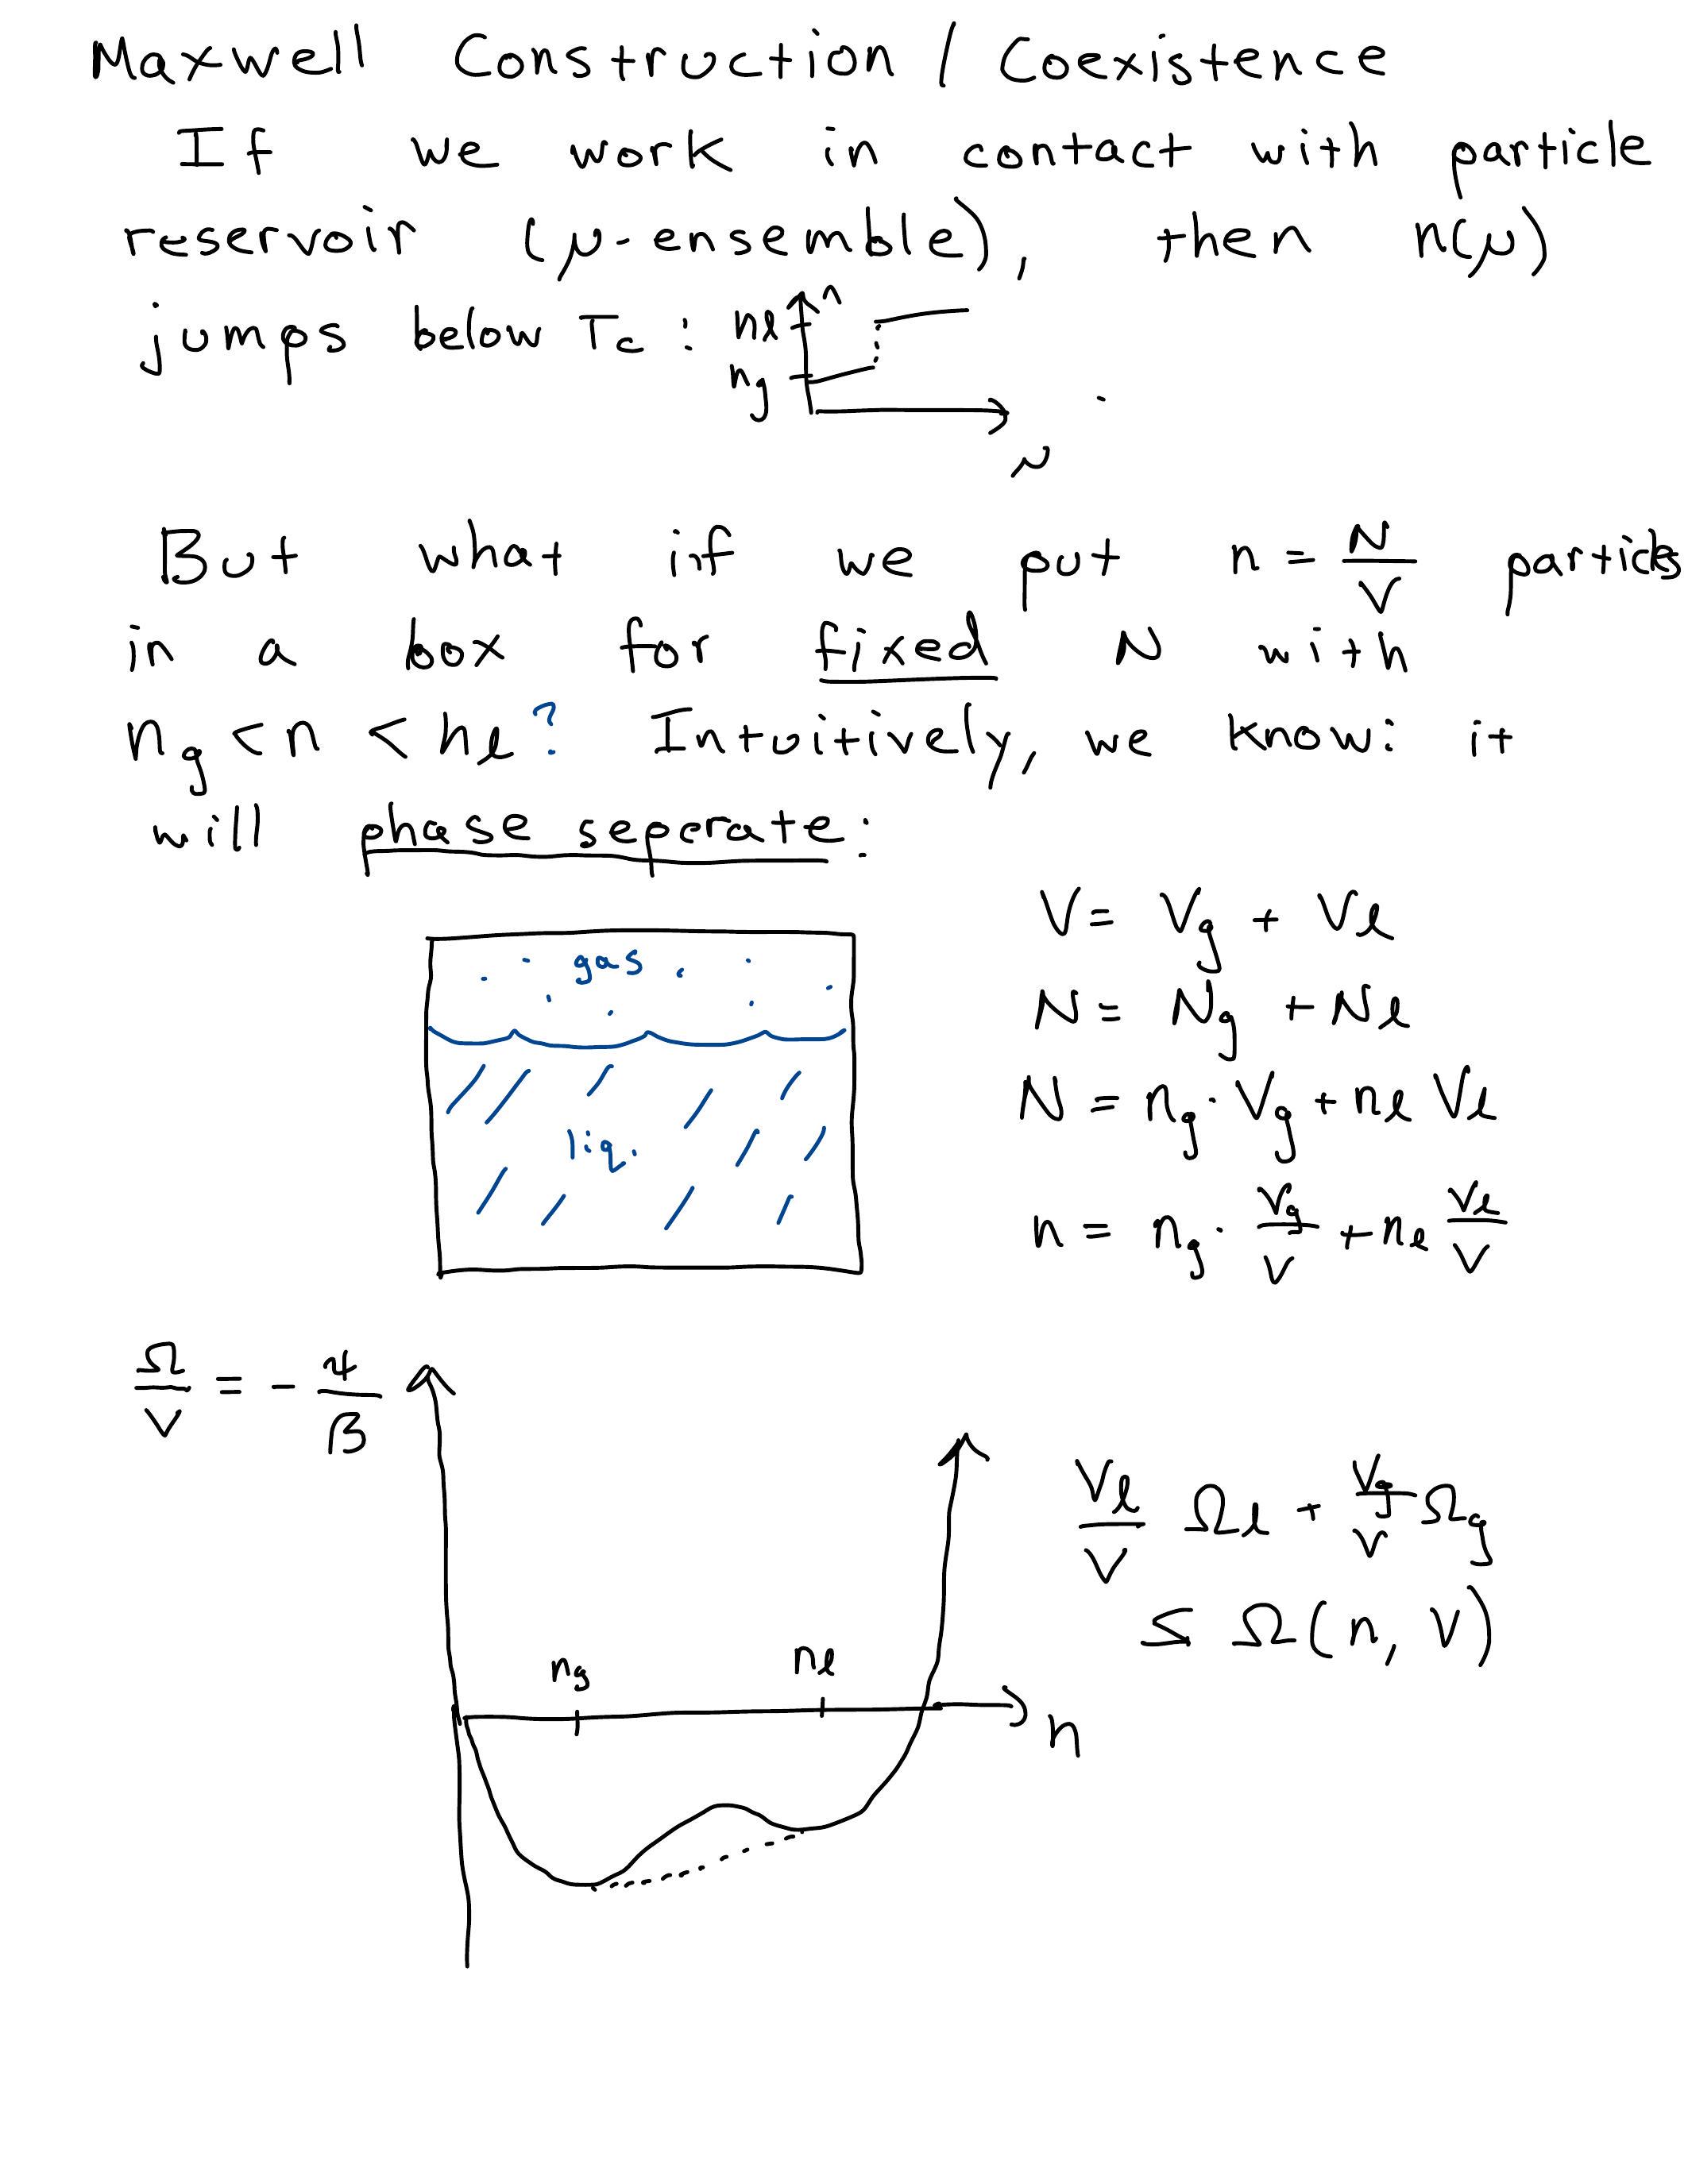 Maxwell Construction / Coexistence
If we work in contact with particle
reservoir (μ-ensemble), then n(μ)
jumps below Tc :
n
nl
ng
μ
But what if we put n = N/V particles
in a box for fixed N with
ng < n < nl? Intuitively, we know: it
will phase seperate:
V = Vg + Vl
gas
N = Ng + Nl
N = ng · Vg + nl Vl
liq.
n = ng · Vg/V + nl Vl/V
Ω/V = - ψ/β
Vl/V Ωl + Vg/V Ωg
≤ Ω(n, V)
ng nl
n